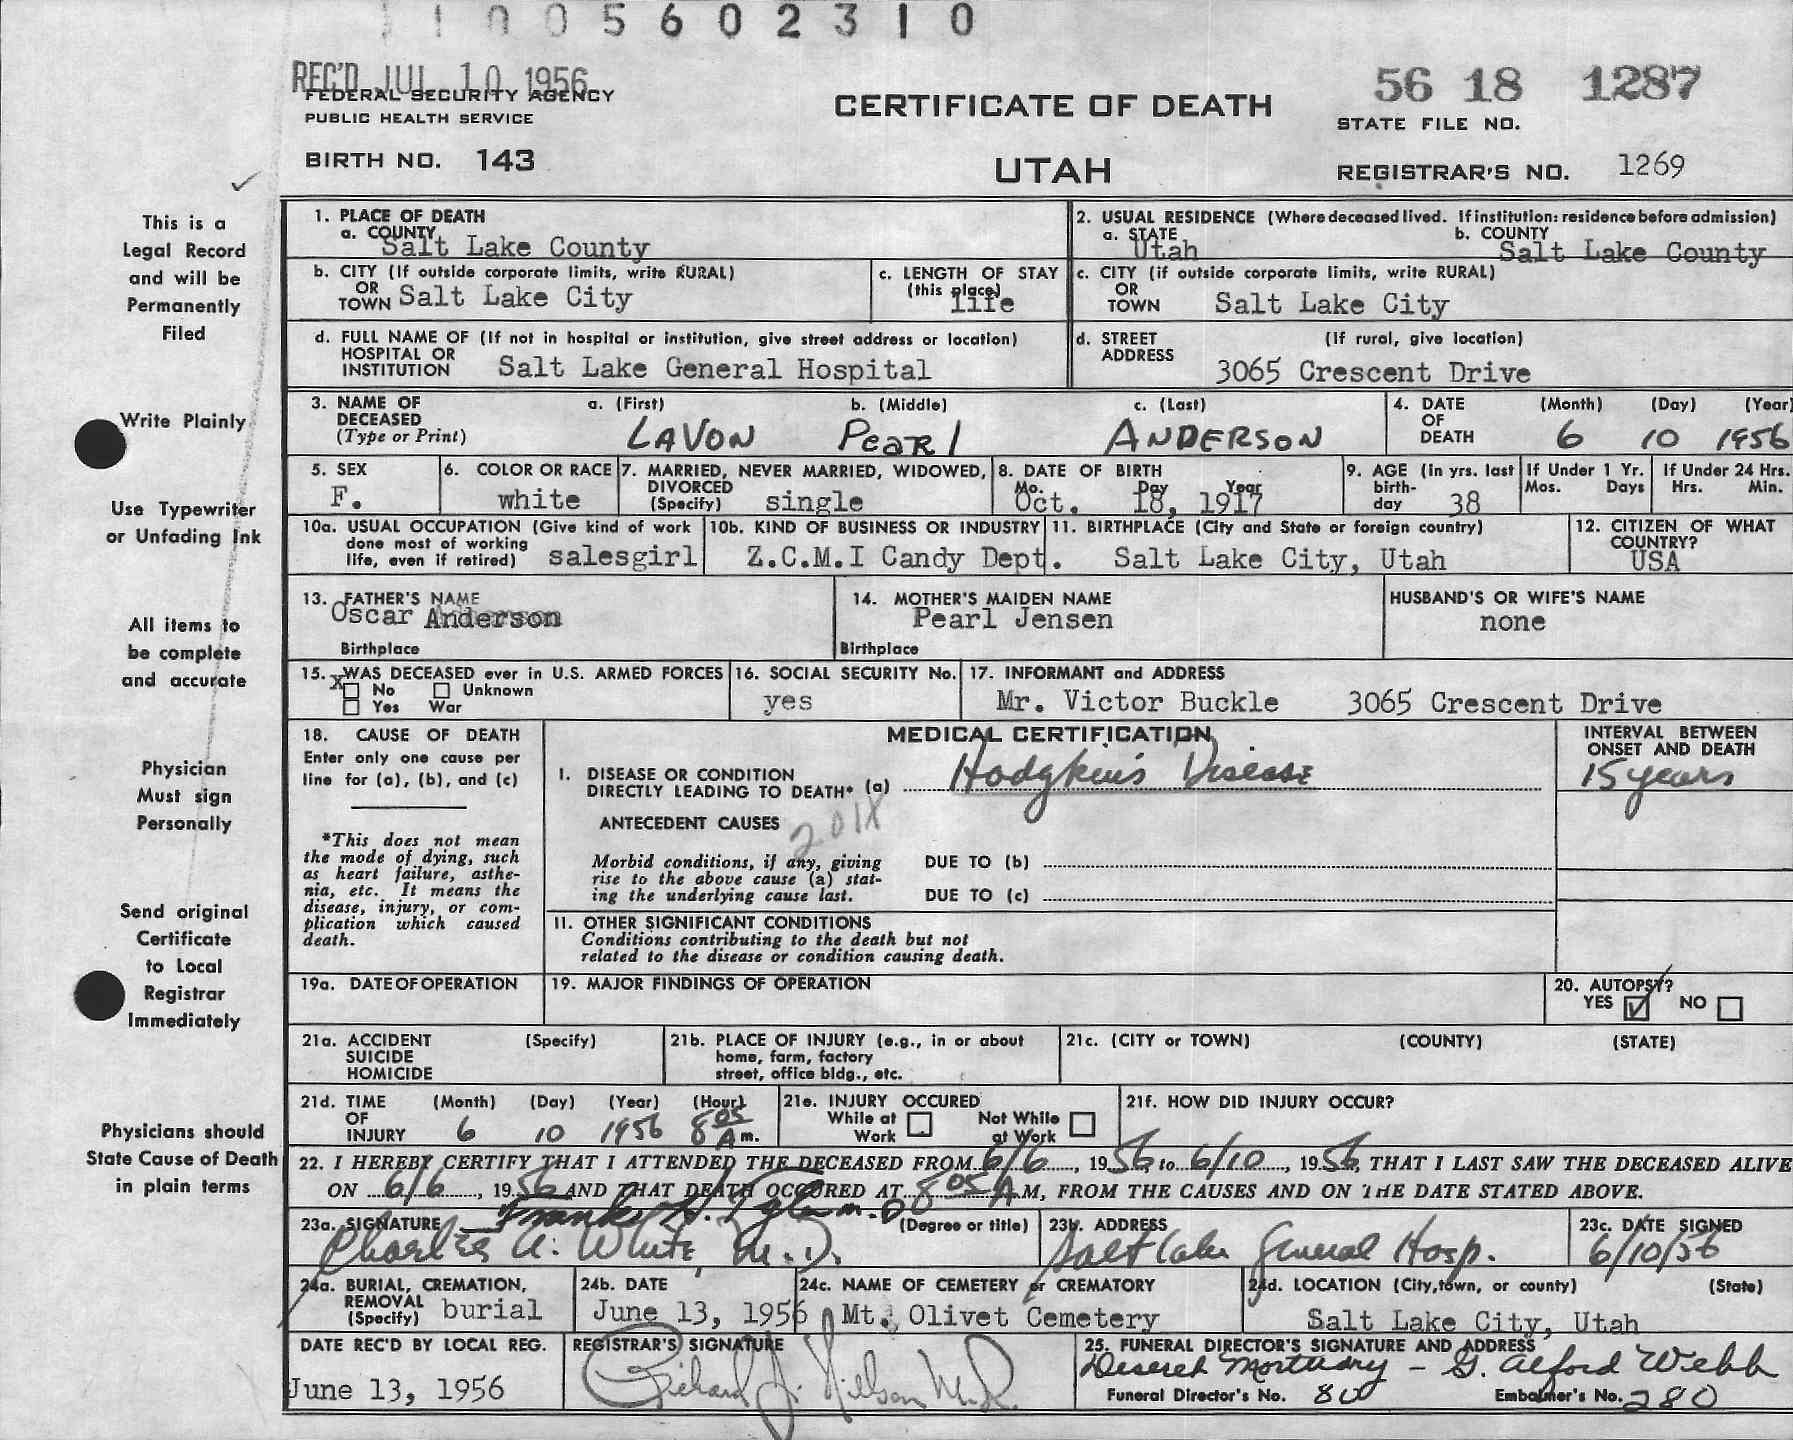 1 1 0 0 5 6 0 2 3 1 0
REC'D JUL 10 1956
FEDERAL SECURITY AGENCY
PUBLIC HEALTH SERVICE
BIRTH NO. 143
CERTIFICATE OF DEATH
UTAH
56 18 1287
STATE FILE NO.
REGISTRAR'S NO. 1269
This is a
Legal Record
and will be
Permanently
Filed
Write Plainly
Use Typewriter
or Unfading Ink
All items to
be complete
and accurate
Physician
Must sign
Personally
Send original
Certificate
to Local
Registrar
Immediately
Physicians should
State Cause of Death
in plain terms
1. PLACE OF DEATH
a. COUNTY
Salt Lake County
2. USUAL RESIDENCE (Where deceased lived. If institution: residence before admission)
a. STATE b. COUNTY
Utah Salt Lake County
b. CITY (If outside corporate limits, write RURAL)
OR
TOWN Salt Lake City
c. LENGTH OF STAY
(this place)
life
c. CITY (if outside corporate limits, write RURAL)
OR
TOWN Salt Lake City
d. FULL NAME OF (If not in hospital or institution, give street address or location)
HOSPITAL OR
INSTITUTION Salt Lake General Hospital
d. STREET (If rural, give location)
ADDRESS
3065 Crescent Drive
3. NAME OF a. (First) b. (Middle) c. (Last)
DECEASED
(Type or Print) LAVON PEARL ANDERSON
4. DATE (Month) (Day) (Year)
OF
DEATH 6 10 1956
5. SEX
F.
6. COLOR OR RACE
white
7. MARRIED, NEVER MARRIED, WIDOWED,
DIVORCED
(Specify) single
8. DATE OF BIRTH
Mo. Day Year
Oct. 18, 1917
9. AGE (in yrs. last
birth-
day 38
If Under 1 Yr.
Mos. Days
If Under 24 Hrs.
Hrs. Min.
10a. USUAL OCCUPATION (Give kind of work
done most of working
life, even if retired) salesgirl
10b. KIND OF BUSINESS OR INDUSTRY
Z.C.M.I Candy Dept.
11. BIRTHPLACE (City and State or foreign country)
Salt Lake City, Utah
12. CITIZEN OF WHAT
COUNTRY?
USA
13. FATHER'S NAME
Oscar Anderson
Birthplace
14. MOTHER'S MAIDEN NAME
Pearl Jensen
Birthplace
HUSBAND'S OR WIFE'S NAME
none
15. WAS DECEASED ever in U.S. ARMED FORCES
x No Unknown
Yes War
16. SOCIAL SECURITY No.
yes
17. INFORMANT and ADDRESS
Mr. Victor Buckle 3065 Crescent Drive
18. CAUSE OF DEATH
Enter only one cause per
line for (a), (b), and (c)
*This does not mean
the mode of dying, such
as heart failure, asthe-
nia, etc. It means the
disease, injury, or com-
plication which caused
death.
MEDICAL CERTIFICATION
I. DISEASE OR CONDITION
DIRECTLY LEADING TO DEATH* (a) Hodgkin's Disease
INTERVAL BETWEEN
ONSET AND DEATH
15 years
ANTECEDENT CAUSES
201X
Morbid conditions, if any, giving
rise to the above cause (a) stat-
ing the underlying cause last.
DUE TO (b)
DUE TO (c)
II. OTHER SIGNIFICANT CONDITIONS
Conditions contributing to the death but not
related to the disease or condition causing death.
19a. DATE OF OPERATION
19. MAJOR FINDINGS OF OPERATION
20. AUTOPSY?
YES ✓ NO
21a. ACCIDENT (Specify)
SUICIDE
HOMICIDE
21b. PLACE OF INJURY (e.g., in or about
home, farm, factory
street, office bldg., etc.
21c. (CITY or TOWN) (COUNTY) (STATE)
21d. TIME (Month) (Day) (Year) (Hour)
OF
INJURY 6 10 1956 8 05 A m.
21e. INJURY OCCURED
While at Not While
Work at Work
21f. HOW DID INJURY OCCUR?
22. I HEREBY CERTIFY THAT I ATTENDED THE DECEASED FROM 6/6, 1956 to 6/10, 1956, THAT I LAST SAW THE DECEASED ALIVE
ON 6/6, 1956 AND THAT DEATH OCCURED AT 8 05 A M, FROM THE CAUSES AND ON THE DATE STATED ABOVE.
Frank H. Tyler M.D.
23a. SIGNATURE (Degree or title)
Charles A. White, M.D.
23b. ADDRESS
Salt Lake General Hosp.
23c. DATE SIGNED
6/10/56
24a. BURIAL, CREMATION,
REMOVAL
(Specify) burial
24b. DATE
June 13, 1956
24c. NAME OF CEMETERY or CREMATORY
Mt. Olivet Cemetery
24d. LOCATION (City, town, or county) (State)
Salt Lake City, Utah
DATE REC'D BY LOCAL REG.
June 13, 1956
REGISTRAR'S SIGNATURE
Richard J. Nelson M.D.
25. FUNERAL DIRECTOR'S SIGNATURE AND ADDRESS
Deseret Mortuary - G. Alford Webb
Funeral Director's No. 80 Embalmer's No. 280